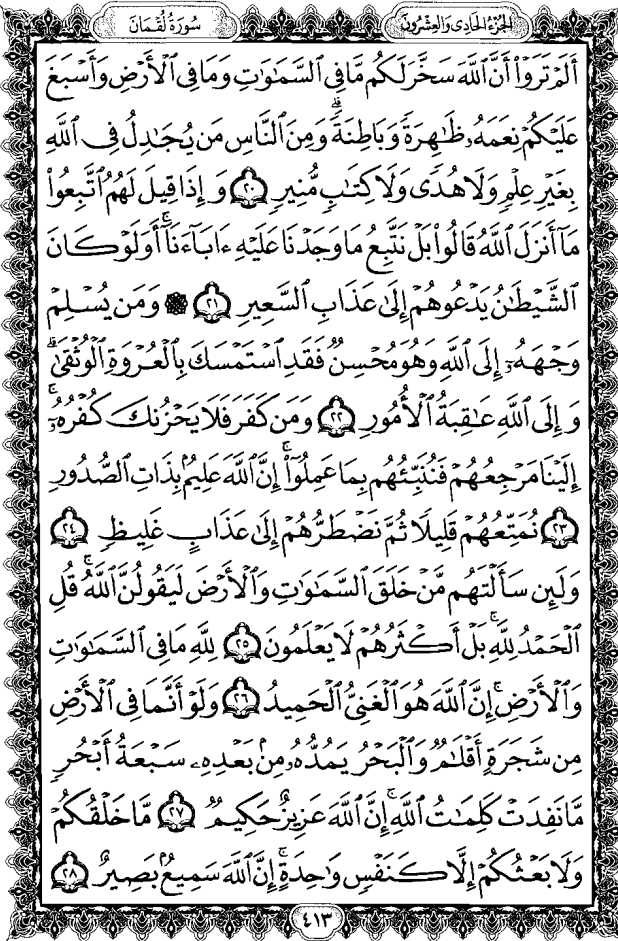 الجزء الحادي والعشرون
سورة لقمان
أَلَمْ تَرَوْا۟ أَنَّ ٱللَّهَ سَخَّرَ لَكُم مَّا فِى ٱلسَّمَـٰوَٰتِ وَمَا فِى ٱلْأَرْضِ وَأَسْبَغَ
عَلَيْكُمْ نِعَمَهُۥ ظَـٰهِرَةً وَبَاطِنَةً ۗ وَمِنَ ٱلنَّاسِ مَن يُجَـٰدِلُ فِى ٱللَّهِ
بِغَيْرِ عِلْمٍ وَلَا هُدًى وَلَا كِتَـٰبٍ مُّنِيرٍ ٢٠ وَإِذَا قِيلَ لَهُمُ ٱتَّبِعُوا۟
مَآ أَنزَلَ ٱللَّهُ قَالُوا۟ بَلْ نَتَّبِعُ مَا وَجَدْنَا عَلَيْهِ ءَابَآءَنَآ ۚ أَوَلَوْ كَانَ
ٱلشَّيْطَـٰنُ يَدْعُوهُمْ إِلَىٰ عَذَابِ ٱلسَّعِيرِ ٢١ ۞ وَمَن يُسْلِمْ
وَجْهَهُۥٓ إِلَى ٱللَّهِ وَهُوَ مُحْسِنٌ فَقَدِ ٱسْتَمْسَكَ بِٱلْعُرْوَةِ ٱلْوُثْقَىٰ ۗ
وَإِلَى ٱللَّهِ عَـٰقِبَةُ ٱلْأُمُورِ ٢٢ وَمَن كَفَرَ فَلَا يَحْزُنكَ كُفْرُهُۥٓ ۚ
إِلَيْنَا مَرْجِعُهُمْ فَنُنَبِّئُهُم بِمَا عَمِلُوٓا۟ ۚ إِنَّ ٱللَّهَ عَلِيمٌۢ بِذَاتِ ٱلصُّدُورِ
٢٣ نُمَتِّعُهُمْ قَلِيلًا ثُمَّ نَضْطَرُّهُمْ إِلَىٰ عَذَابٍ غَلِيظٍ ٢٤
وَلَئِن سَأَلْتَهُم مَّنْ خَلَقَ ٱلسَّمَـٰوَٰتِ وَٱلْأَرْضَ لَيَقُولُنَّ ٱللَّهُ ۚ قُلِ
ٱلْحَمْدُ لِلَّهِ ۚ بَلْ أَكْثَرُهُمْ لَا يَعْلَمُونَ ٢٥ لِلَّهِ مَا فِى ٱلسَّمَـٰوَٰتِ
وَٱلْأَرْضِ ۚ إِنَّ ٱللَّهَ هُوَ ٱلْغَنِىُّ ٱلْحَمِيدُ ٢٦ وَلَوْ أَنَّمَا فِى ٱلْأَرْضِ
مِن شَجَرَةٍ أَقْلَـٰمٌ وَٱلْبَحْرُ يَمُدُّهُۥ مِنۢ بَعْدِهِۦ سَبْعَةُ أَبْحُرٍ
مَّا نَفِدَتْ كَلِمَـٰتُ ٱللَّهِ ۗ إِنَّ ٱللَّهَ عَزِيزٌ حَكِيمٌ ٢٧ مَّا خَلْقُكُمْ
وَلَا بَعْثُكُمْ إِلَّا كَنَفْسٍ وَٰحِدَةٍ ۗ إِنَّ ٱللَّهَ سَمِيعٌۢ بَصِيرٌ ٢٨
٤١٣